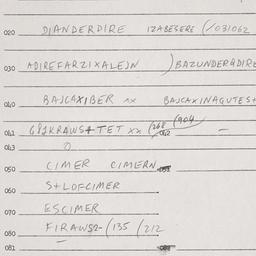 020 DIANDERDIRE IZABESERE (/031062
030 ADIREFARZIXALEJN )BAZUNDERADIRE
040 BAJCAXIBER xx BAJCAXINAGUTES+
041 xx (268 (904 042 —
043
050 CIMER CIMERN
060 S+LOFCIMER
070 ESCIMER
080 (135 /212
081